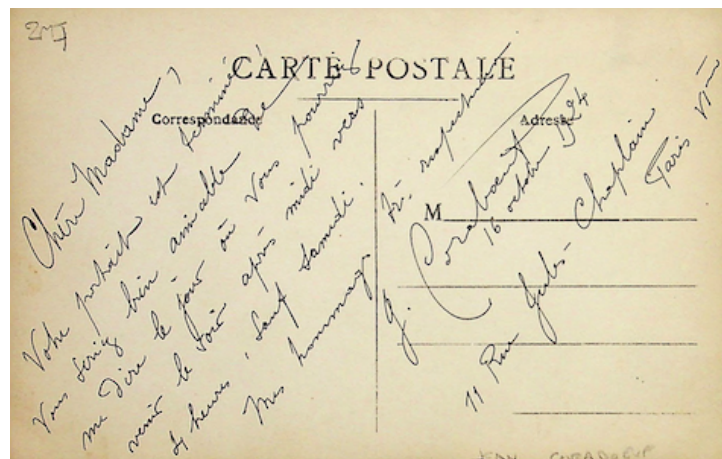 CARTE POSTALE
Correspondance
Adresse
M
Chère Madame,
Votre portrait est terminé!
Vous seriez bien aimable de
me dire le jour où vous pourriez
venir le voir après midi vers
4 heures, sauf Samedi.
Mes hommages très respectueux
J. Coraboeuf
16 octobre 1924
11 Rue Jules Chaplain
Paris VIme